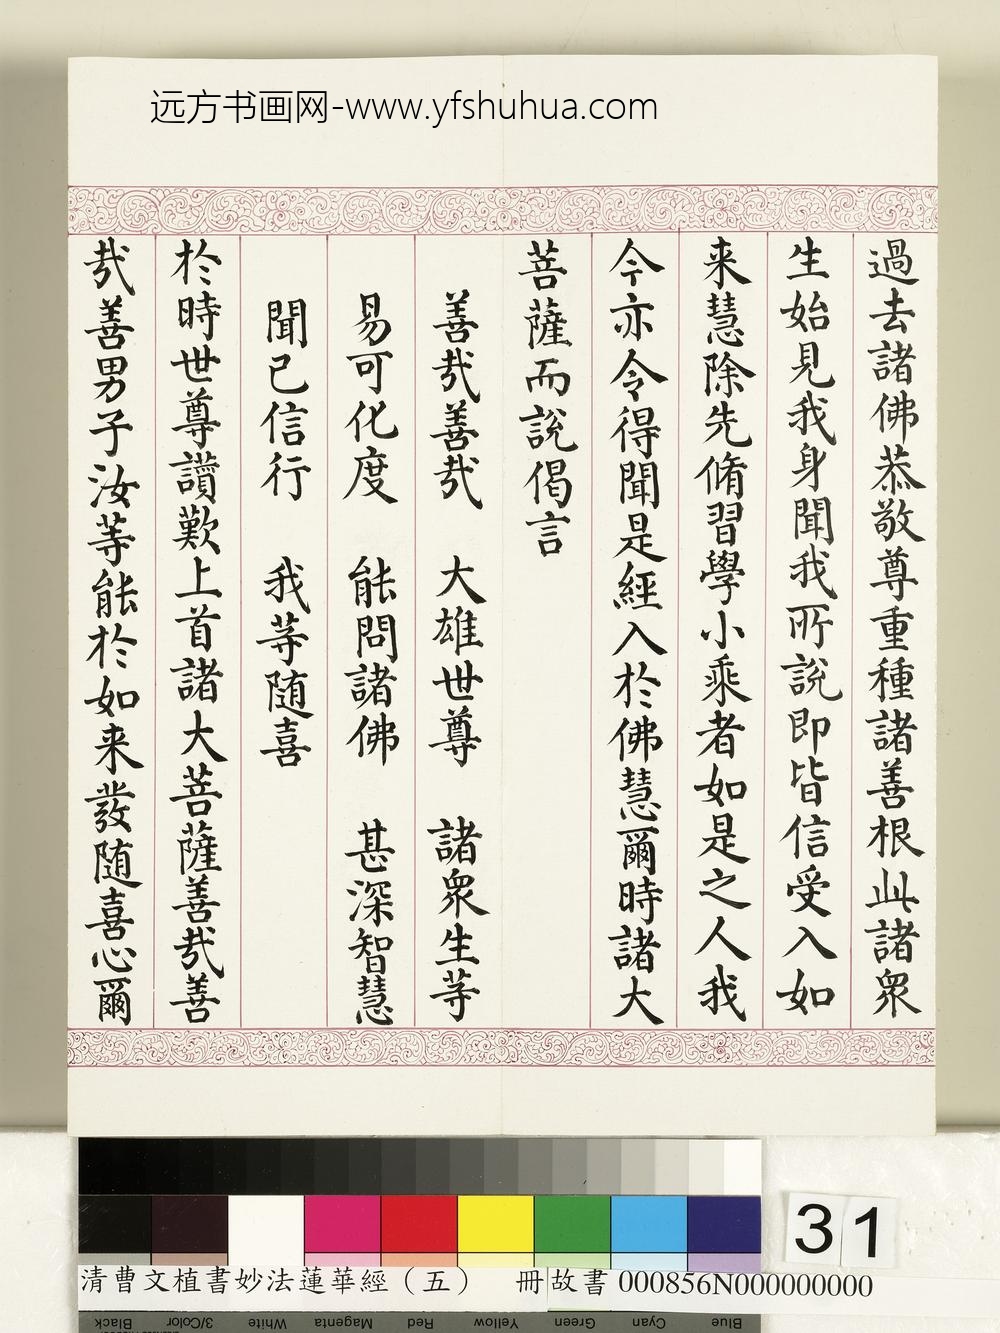 远方书画网-www.yfshuhua.com
過去諸佛恭敬尊重種諸善根此諸眾
生始見我身聞我所說即皆信受入如
来慧除先脩習學小乘者如是之人我
今亦令得聞是經入於佛慧爾時諸大
菩薩而說偈言
善哉善哉 大雄世尊 諸眾生等
易可化度 能問諸佛 甚深智慧
聞已信行 我等随喜
於時世尊讚歎上首諸大菩薩善哉善
哉善男子汝等能於如来發随喜心爾
31
清曹文植書妙法蓮華經（五） 冊 故書000856N000000000
Blue Cyan Green Yellow Red Magenta White 3/Color Black